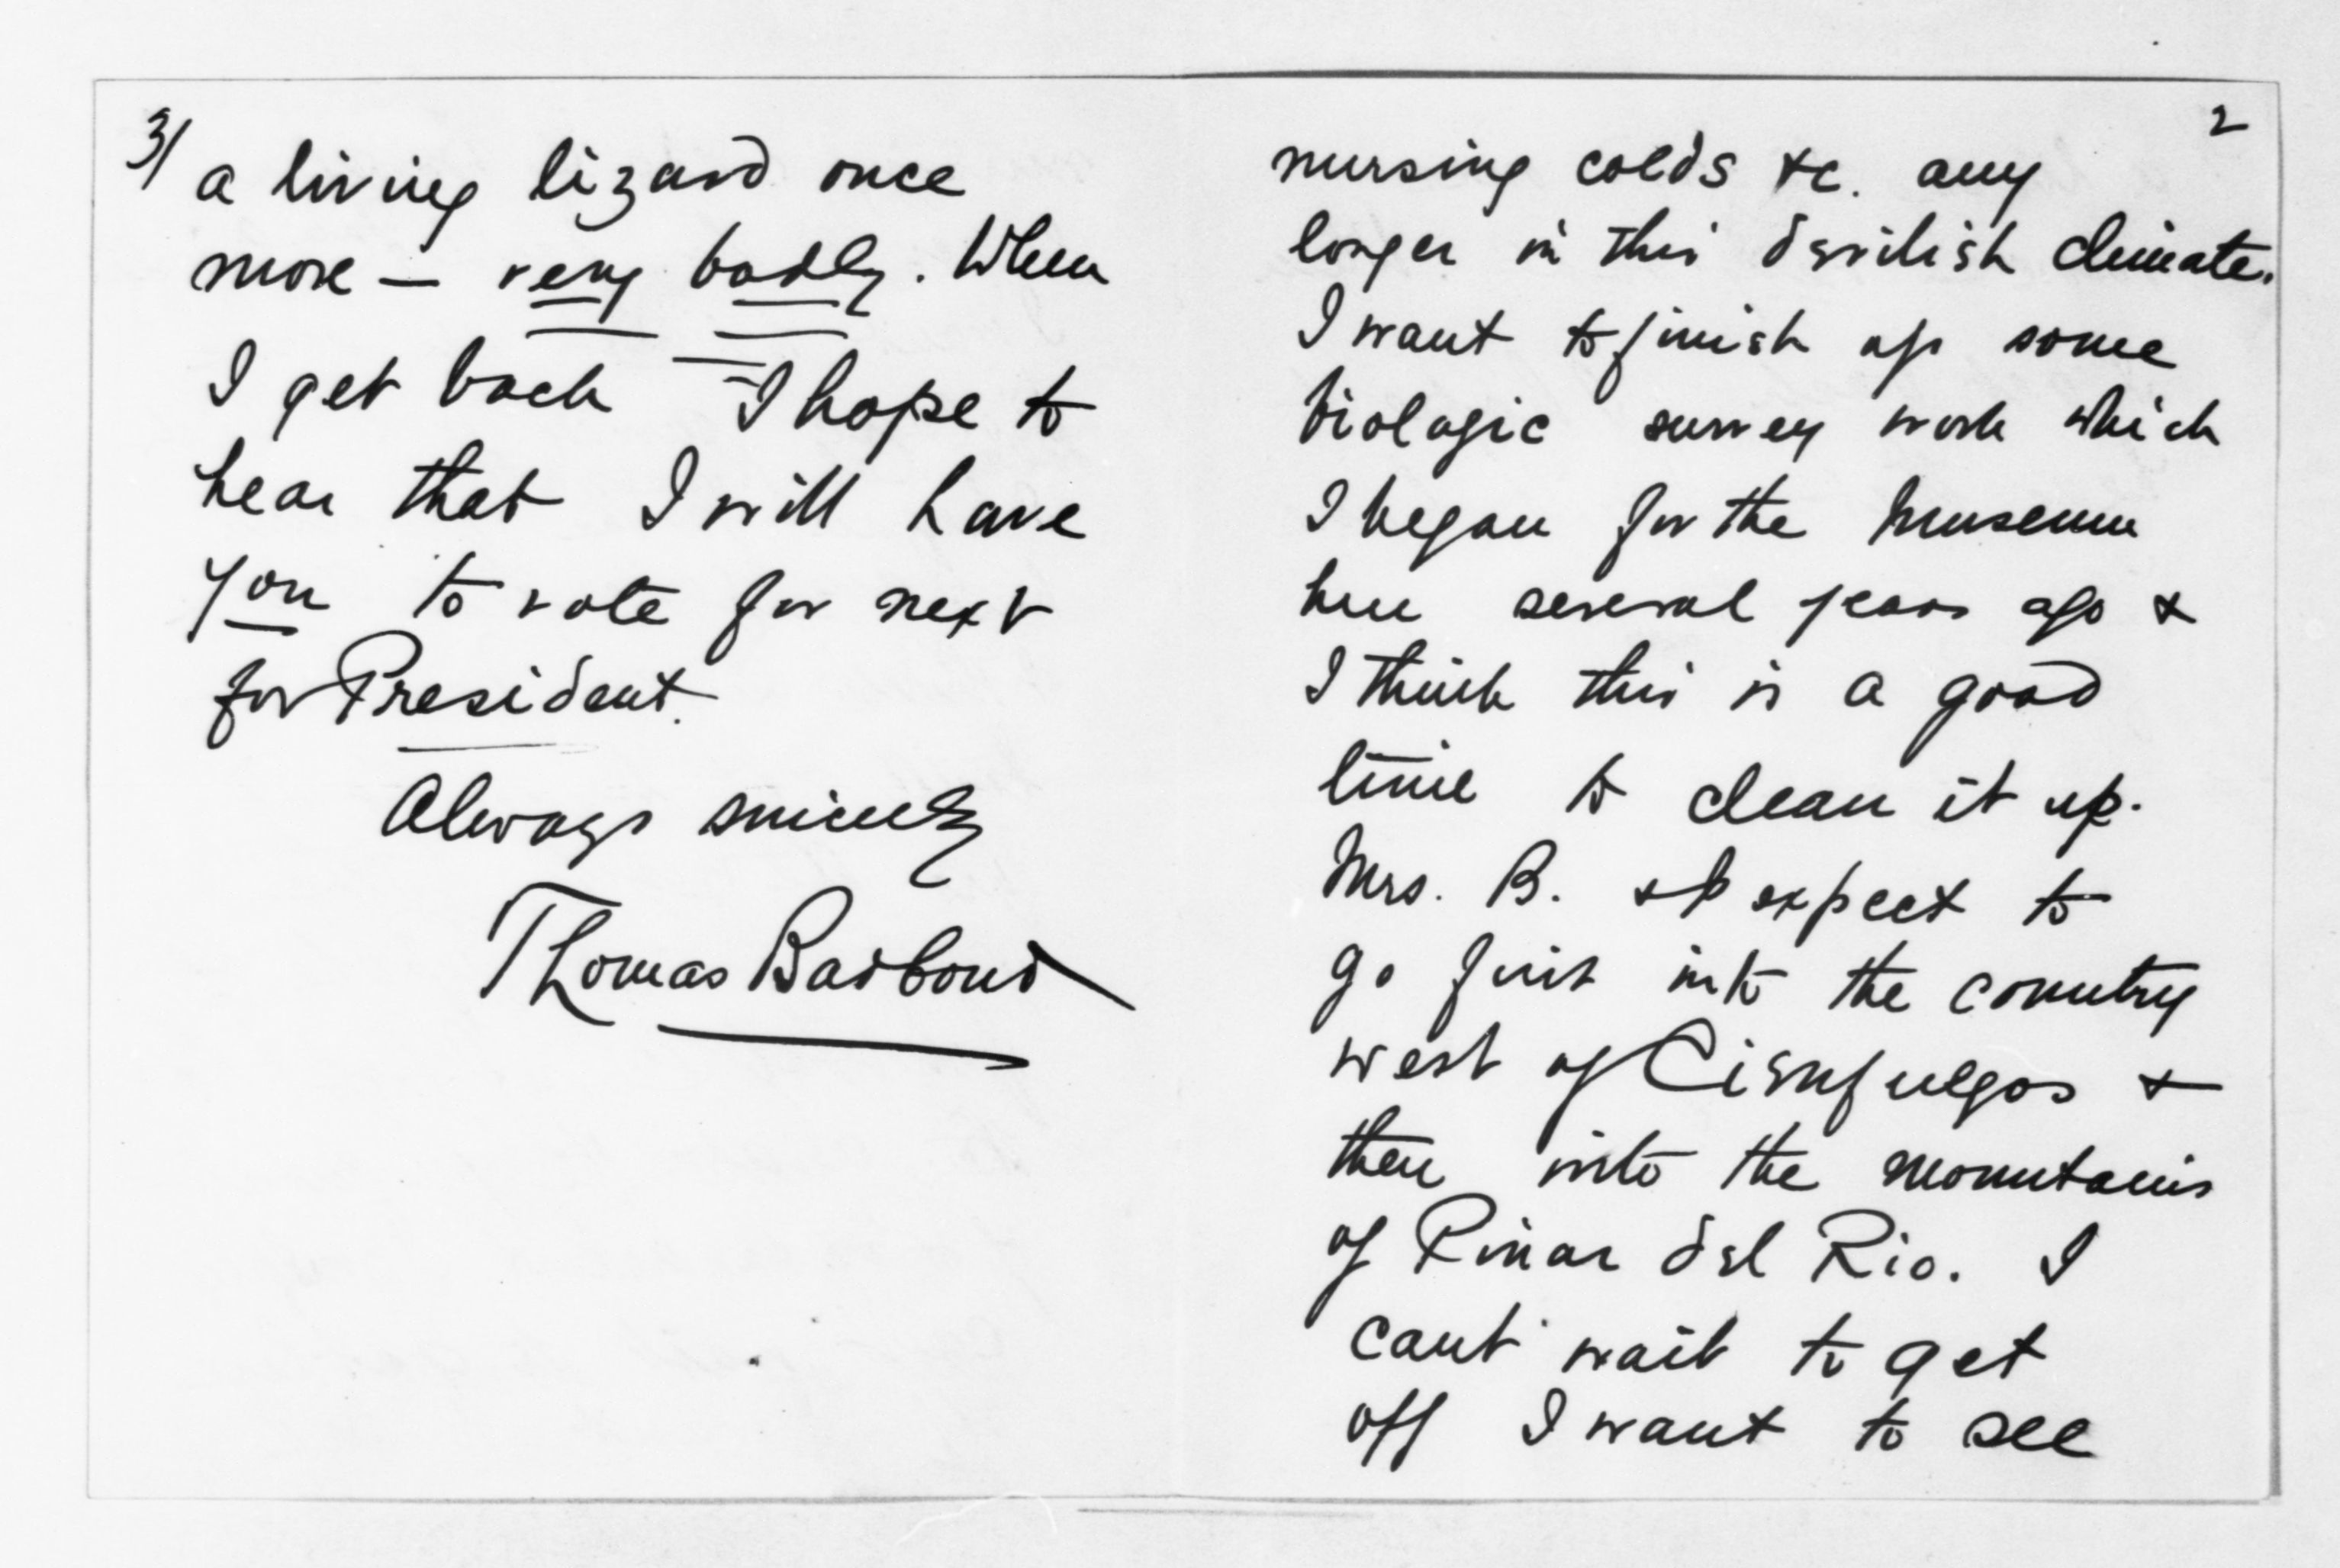 2
nursing colds &c. any
longer in this devilish climate.
I want to finish up some
biologic survey work which
I began for the Museum
here several years ago &
I think this is a good
time to clean it up.
Mrs. B. & I expect to
go first into the country
west of Cienfuegos &
then into the mountains
of Pinar del Rio. I
cant wait to get
off I want to see
3/
a living lizard once
more — very badly. When
I get back I hope to
hear that I will have
you to vote for next
for President.
Always sincerely
Thomas Barbour